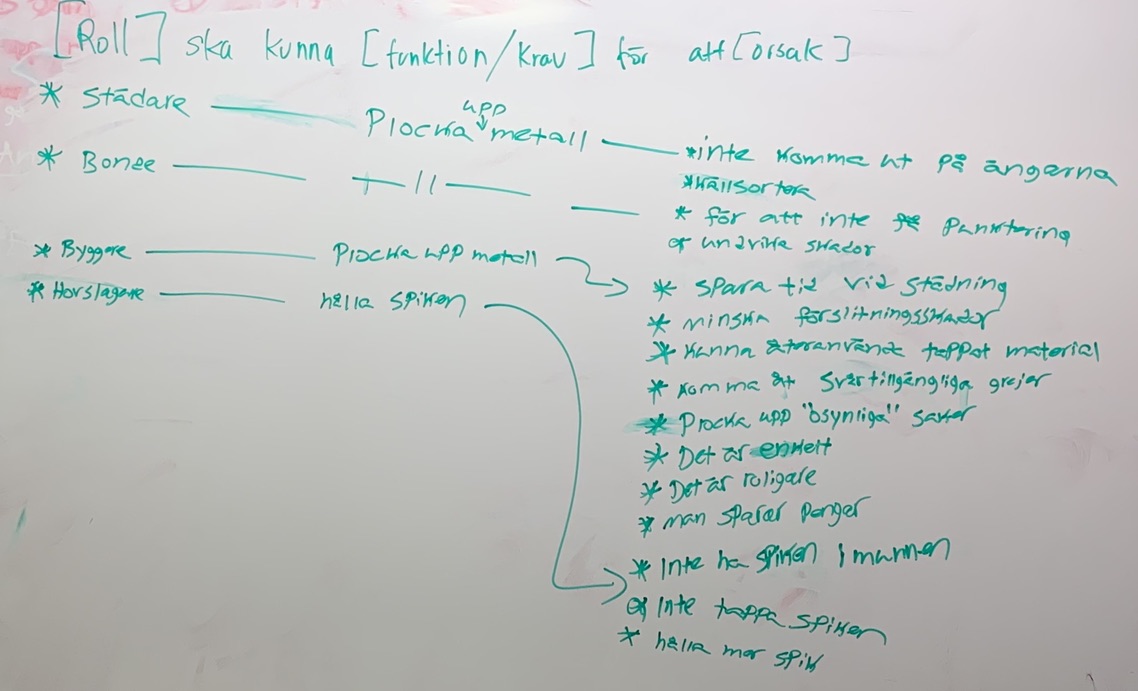 [Roll] ska kunna [funktion/krav] för att [orsak]
* Städare
upp
Plocka metall
* inte komma åt på ängarna
* Bonde
-11-
* källsortera
* för att inte få punktering
undvika skador
* Byggare
Plocka upp metall
* spara tid vid städning
* Hovslagare
hålla spiken
* minska förslitningsskador
* kunna återanvända tappat material
* komma åt svårtillgängliga grejer
* Plocka upp "osynliga" saker
* Det är enkelt
* Det är roligare
* man sparar pengar
* Inte ha spiken i munnen
* Inte tappa spiken
* hålla mer spik